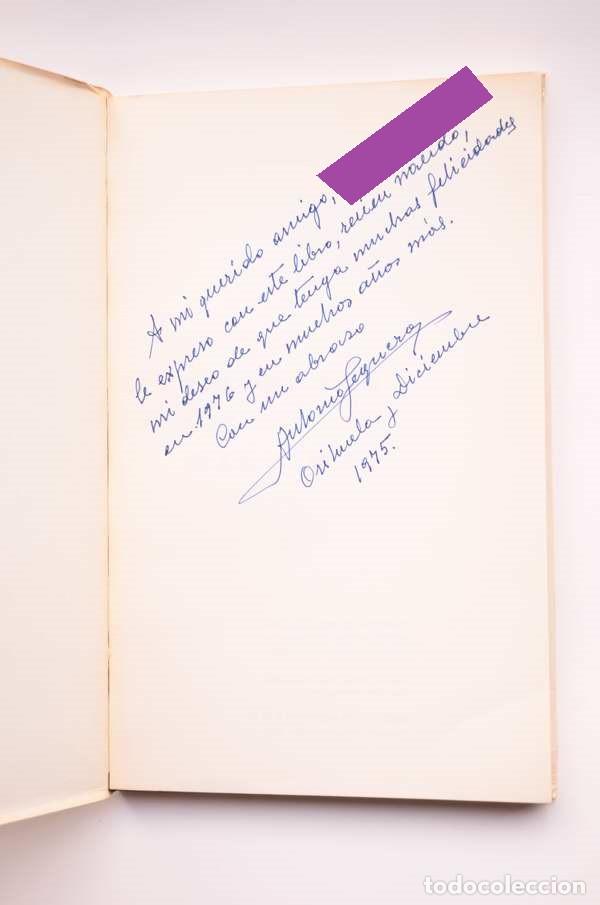 A mi querido amigo,
le expreso con este libro, recién nacido,
mi deseo de que tenga muchas felicidades
en 1976 y en muchos años más.
Con un abrazo
Antonio Sequeros
Orihuela y Diciembre
1975.
todocoleccion